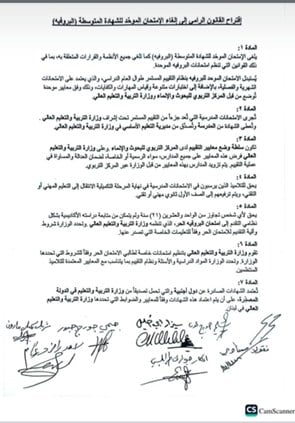 إقتراح القانون الرامي إلى إلغاء الإمتحان الموحد للشهادة المتوسطة (البروفيه)
المادة ١:
يلغى الإمتحان الموحد للشهادة المتوسطة (البروفيه) كما تلغى جميع الأنظمة والقرارات المتعلقة به، بما في
ذلك القوانين التي تنظم امتحانات البروفيه الموحدة.
يُستبدل الامتحان الموحد للبروفيه بنظام التقييم المستمر طوال العام الدراسي، والذي يعتمد على الامتحانات
الشهرية والفصلية، بالإضافة إلى اختبارات متنوعة وقياس المهارات والكفايات، وذلك وفق معايير موحدة
توضع من قبل المركز التربوي للبحوث والإنماء ووزارة التربية والتعليم العالي.
المادة ٢:
تُجرى الامتحانات المدرسية التي تُعد جزءاً من التقييم المستمر تحت إشراف وزارة التربية والتعليم العالي،
وتُعطى الشهادة من المدرسة وتُصدّق من مديرية التعليم الأساسي في وزارة التربية والتعليم العالي.
المادة ٣:
تكون سلطة وضع معايير التقييم لدى المركز التربوي للبحوث والإنماء، وعلى وزارة التربية والتعليم
العالي فرض هذه المعايير على جميع المدارس، سواء الرسمية أو الخاصة، لضمان العدالة والمساواة في
عملية التقييم. يتم تزويد المدارس بهذه المعايير من قبل الوزارة عبر المركز التربوي.
المادة ٤:
يحق للتلاميذ الذين يرسبون في الامتحانات المدرسية في نهاية المرحلة التكميلية الانتقال إلى التعليم المهني أو
التقني، ويتم ترفيعهم إلى الصف الأول ثانوي مهني أو تقني.
المادة ٥:
يحق لأي شخص تجاوز سن الواحد والعشرين (٢١) سنة ولم يتمكن من متابعة دراسته الأكاديمية بشكل
نظامي التقدم إلى امتحان البروفيه الحر، الذي تنظمه وزارة التربية والتعليم العالي. وتحدد الوزارة شروط
وآلية التقديم للامتحان الحر وفقاً للتعليمات الخاصة التي تصدر عنها.
المادة ٦:
تقوم وزارة التربية والتعليم العالي بتنظيم امتحانات خاصة لطالبي الامتحان الحر وفقاً للشروط التي تحددها
الوزارة. وتحدد الوزارة المواد الدراسية والأسئلة ونظام التقييم بما يتناسب مع المعايير المعتمدة للتلاميذ
المنتظمين.
المادة ٧:
تُعتمد الشهادات الصادرة عن دول أجنبية والتي تحمل تصديقاً من وزارة التربية والتعليم في الدولة
المصدرة، على أن يتم اعتماد هذه الشهادات وفقاً للمعايير والضوابط التي تحددها وزارة التربية والتعليم العالي
في لبنان.
CS CamScanner